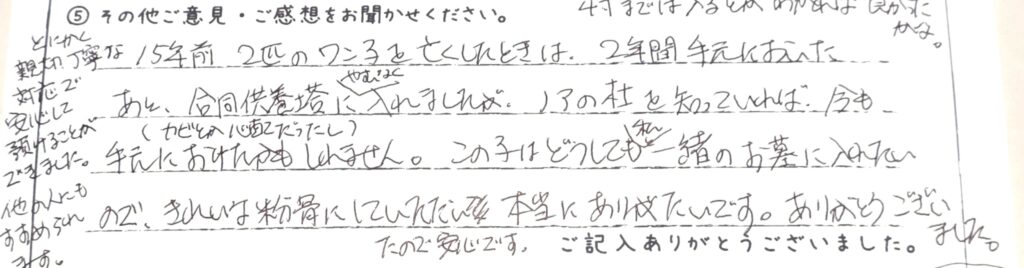 ⑤ その他ご意見・ご感想をお聞かせください。
15年前 2匹のワン子を亡くしたときは、2年間手元においた
あと、合同供養塔にやむなく入れましたが、ノアの杜を知っていれば、今も
(カビとか心配だったし)
手元におけたかもしれません。この子はどうしても私と一緒のお墓に入れたい
ので、きれいな粉骨にしていただい
たので安心です。
本当にありがたいです。ありがとうござい
ました。
ご記入ありがとうございました。
とにかく
親切丁寧な
対応で
安心して
預けることが
できました。
他の人にも
すすめられ
ます。
4寸までは入るとかわかれば良かった
かな。